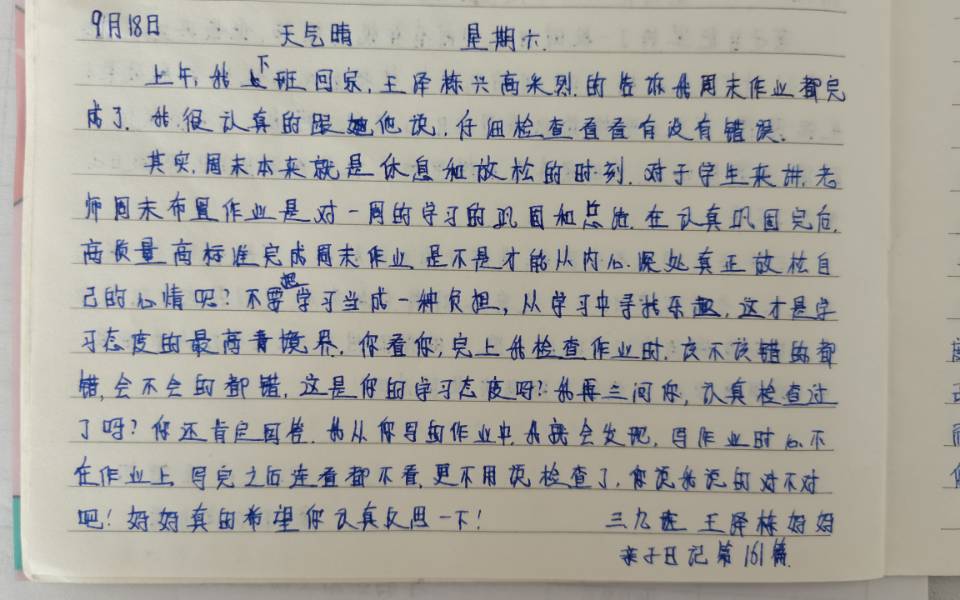 9月18日 天气晴 星期六.
上午,我下班回家,王泽栋兴高采烈的告诉我周末作业都完
成了.我很认真的跟他说,仔细检查看看有没有错误.
其实,周末本来就是休息和放松的时刻.对于学生来讲,老
师周末布置作业是对一周的学习的巩固和总结.在认真巩固完后,
高质量高标准完成周末作业,是不是才能从内心深处真正放松自
己的心情呢?不要把学习当成一种负担,从学习中寻找乐趣,这才是学
习态度的最高境界.你看你,晚上我检查作业时,该不该错的都
错,会不会的都错,这是你的学习态度吗?我再三问你,认真检查过
了吗?你还肯定回答.我从你写的作业中,我就会发现,写作业时心不
在作业上,写完之后连看都不看,更不用说检查了,你说我说的对不对
吧!妈妈真的希望你认真反思一下!三九班 王泽栋妈妈
亲子日记第161篇.